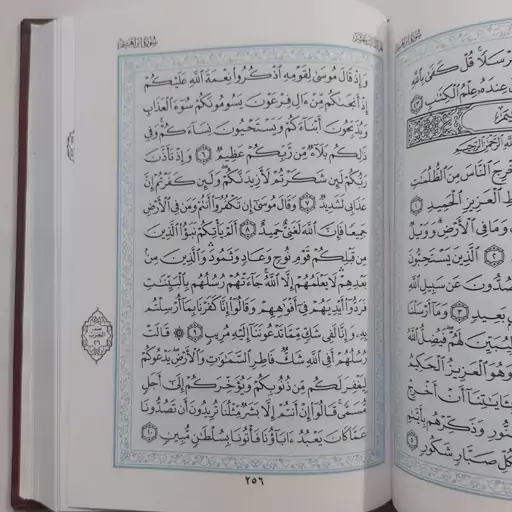 سُورَةُ إِبْرَاهِيمَ
رْسَلًا قُلْ كَفَىٰ بِٱللَّهِ
عِندَهُۥ عِلْمُ ٱلْكِتَٰبِ ٤٣
ٱلرَّحْمَٰنِ ٱلرَّحِيمِ
ٱلنَّاسَ مِنَ ٱلظُّلُمَٰتِ
ٱلْعَزِيزِ ٱلْحَمِيدِ ١
وَمَا فِى ٱلْأَرْضِ وَوَيْلٌ
٢ ٱلَّذِينَ يَسْتَحِبُّونَ
صُدُّونَ عَن سَبِيلِ ٱللَّهِ
بَعِيدٍ ٣ وَمَآ أَرْسَلْنَا
لَهُمْ فَيُضِلُّ ٱللَّهُ
وَهُوَ ٱلْعَزِيزُ ٱلْحَكِيمُ
بِـَٔايَٰتِنَآ أَنْ أَخْرِجْ
وَذَكِّرْهُم
كُلِّ صَبَّارٍ شَكُورٍ ٥
سُورَةُ إِبْرَاهِيمَ
وَإِذْ قَالَ مُوسَىٰ لِقَوْمِهِ ٱذْكُرُوا۟ نِعْمَةَ ٱللَّهِ عَلَيْكُمْ
إِذْ أَنجَىٰكُم مِّنْ ءَالِ فِرْعَوْنَ يَسُومُونَكُمْ سُوٓءَ ٱلْعَذَابِ
وَيُذَبِّحُونَ أَبْنَآءَكُمْ وَيَسْتَحْيُونَ نِسَآءَكُمْ وَفِى
ذَٰلِكُم بَلَآءٌ مِّن رَّبِّكُمْ عَظِيمٌ ٦ وَإِذْ تَأَذَّنَ
رَبُّكُمْ لَئِن شَكَرْتُمْ لَأَزِيدَنَّكُمْ وَلَئِن كَفَرْتُمْ إِنَّ
عَذَابِى لَشَدِيدٌ ٧ وَقَالَ مُوسَىٰٓ إِن تَكْفُرُوٓا۟ أَنتُمْ وَمَن فِى ٱلْأَرْضِ
جَمِيعًا فَإِنَّ ٱللَّهَ لَغَنِىٌّ حَمِيدٌ ٨ أَلَمْ يَأْتِكُمْ نَبَؤُا۟ ٱلَّذِينَ
مِن قَبْلِكُمْ قَوْمِ نُوحٍ وَعَادٍ وَثَمُودَ وَٱلَّذِينَ مِنۢ
بَعْدِهِمْ لَا يَعْلَمُهُمْ إِلَّا ٱللَّهُ جَآءَتْهُمْ رُسُلُهُم بِٱلْبَيِّنَٰتِ
فَرَدُّوٓا۟ أَيْدِيَهُمْ فِىٓ أَفْوَٰهِهِمْ وَقَالُوٓا۟ إِنَّا كَفَرْنَا بِمَآ أُرْسِلْتُم
بِهِۦ وَإِنَّا لَفِى شَكٍّ مِّمَّا تَدْعُونَنَآ إِلَيْهِ مُرِيبٍ ٩ ۞ قَالَتْ
رُسُلُهُمْ أَفِى ٱللَّهِ شَكٌّ فَاطِرِ ٱلسَّمَٰوَٰتِ وَٱلْأَرْضِ يَدْعُوكُمْ
لِيَغْفِرَ لَكُم مِّن ذُنُوبِكُمْ وَيُؤَخِّرَكُمْ إِلَىٰٓ أَجَلٍ
مُّسَمًّى قَالُوٓا۟ إِنْ أَنتُمْ إِلَّا بَشَرٌ مِّثْلُنَا تُرِيدُونَ أَن تَصُدُّونَا
عَمَّا كَانَ يَعْبُدُ ءَابَآؤُنَا فَأْتُونَا بِسُلْطَٰنٍ مُّبِينٍ ١٠
٢٥٦